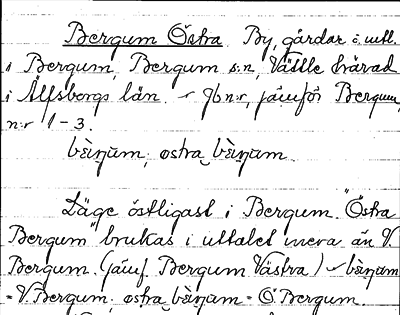 Bergum Östra. By, gårdar i utt.
i Bergum, Bergum s:n, Vättle härad
i Älfsborgs län. Jbnr, jämför Bergum,
n:r 1-3.
bèrgum, östra bèrgum.
Läge östligast i Bergum. "Östra
Bergum" brukas i uttalet mera än V.
Bergum. (jämf. Bergum Västra) bèrgum
= V. Bergum; östra bèrgum = Ö. Bergum.